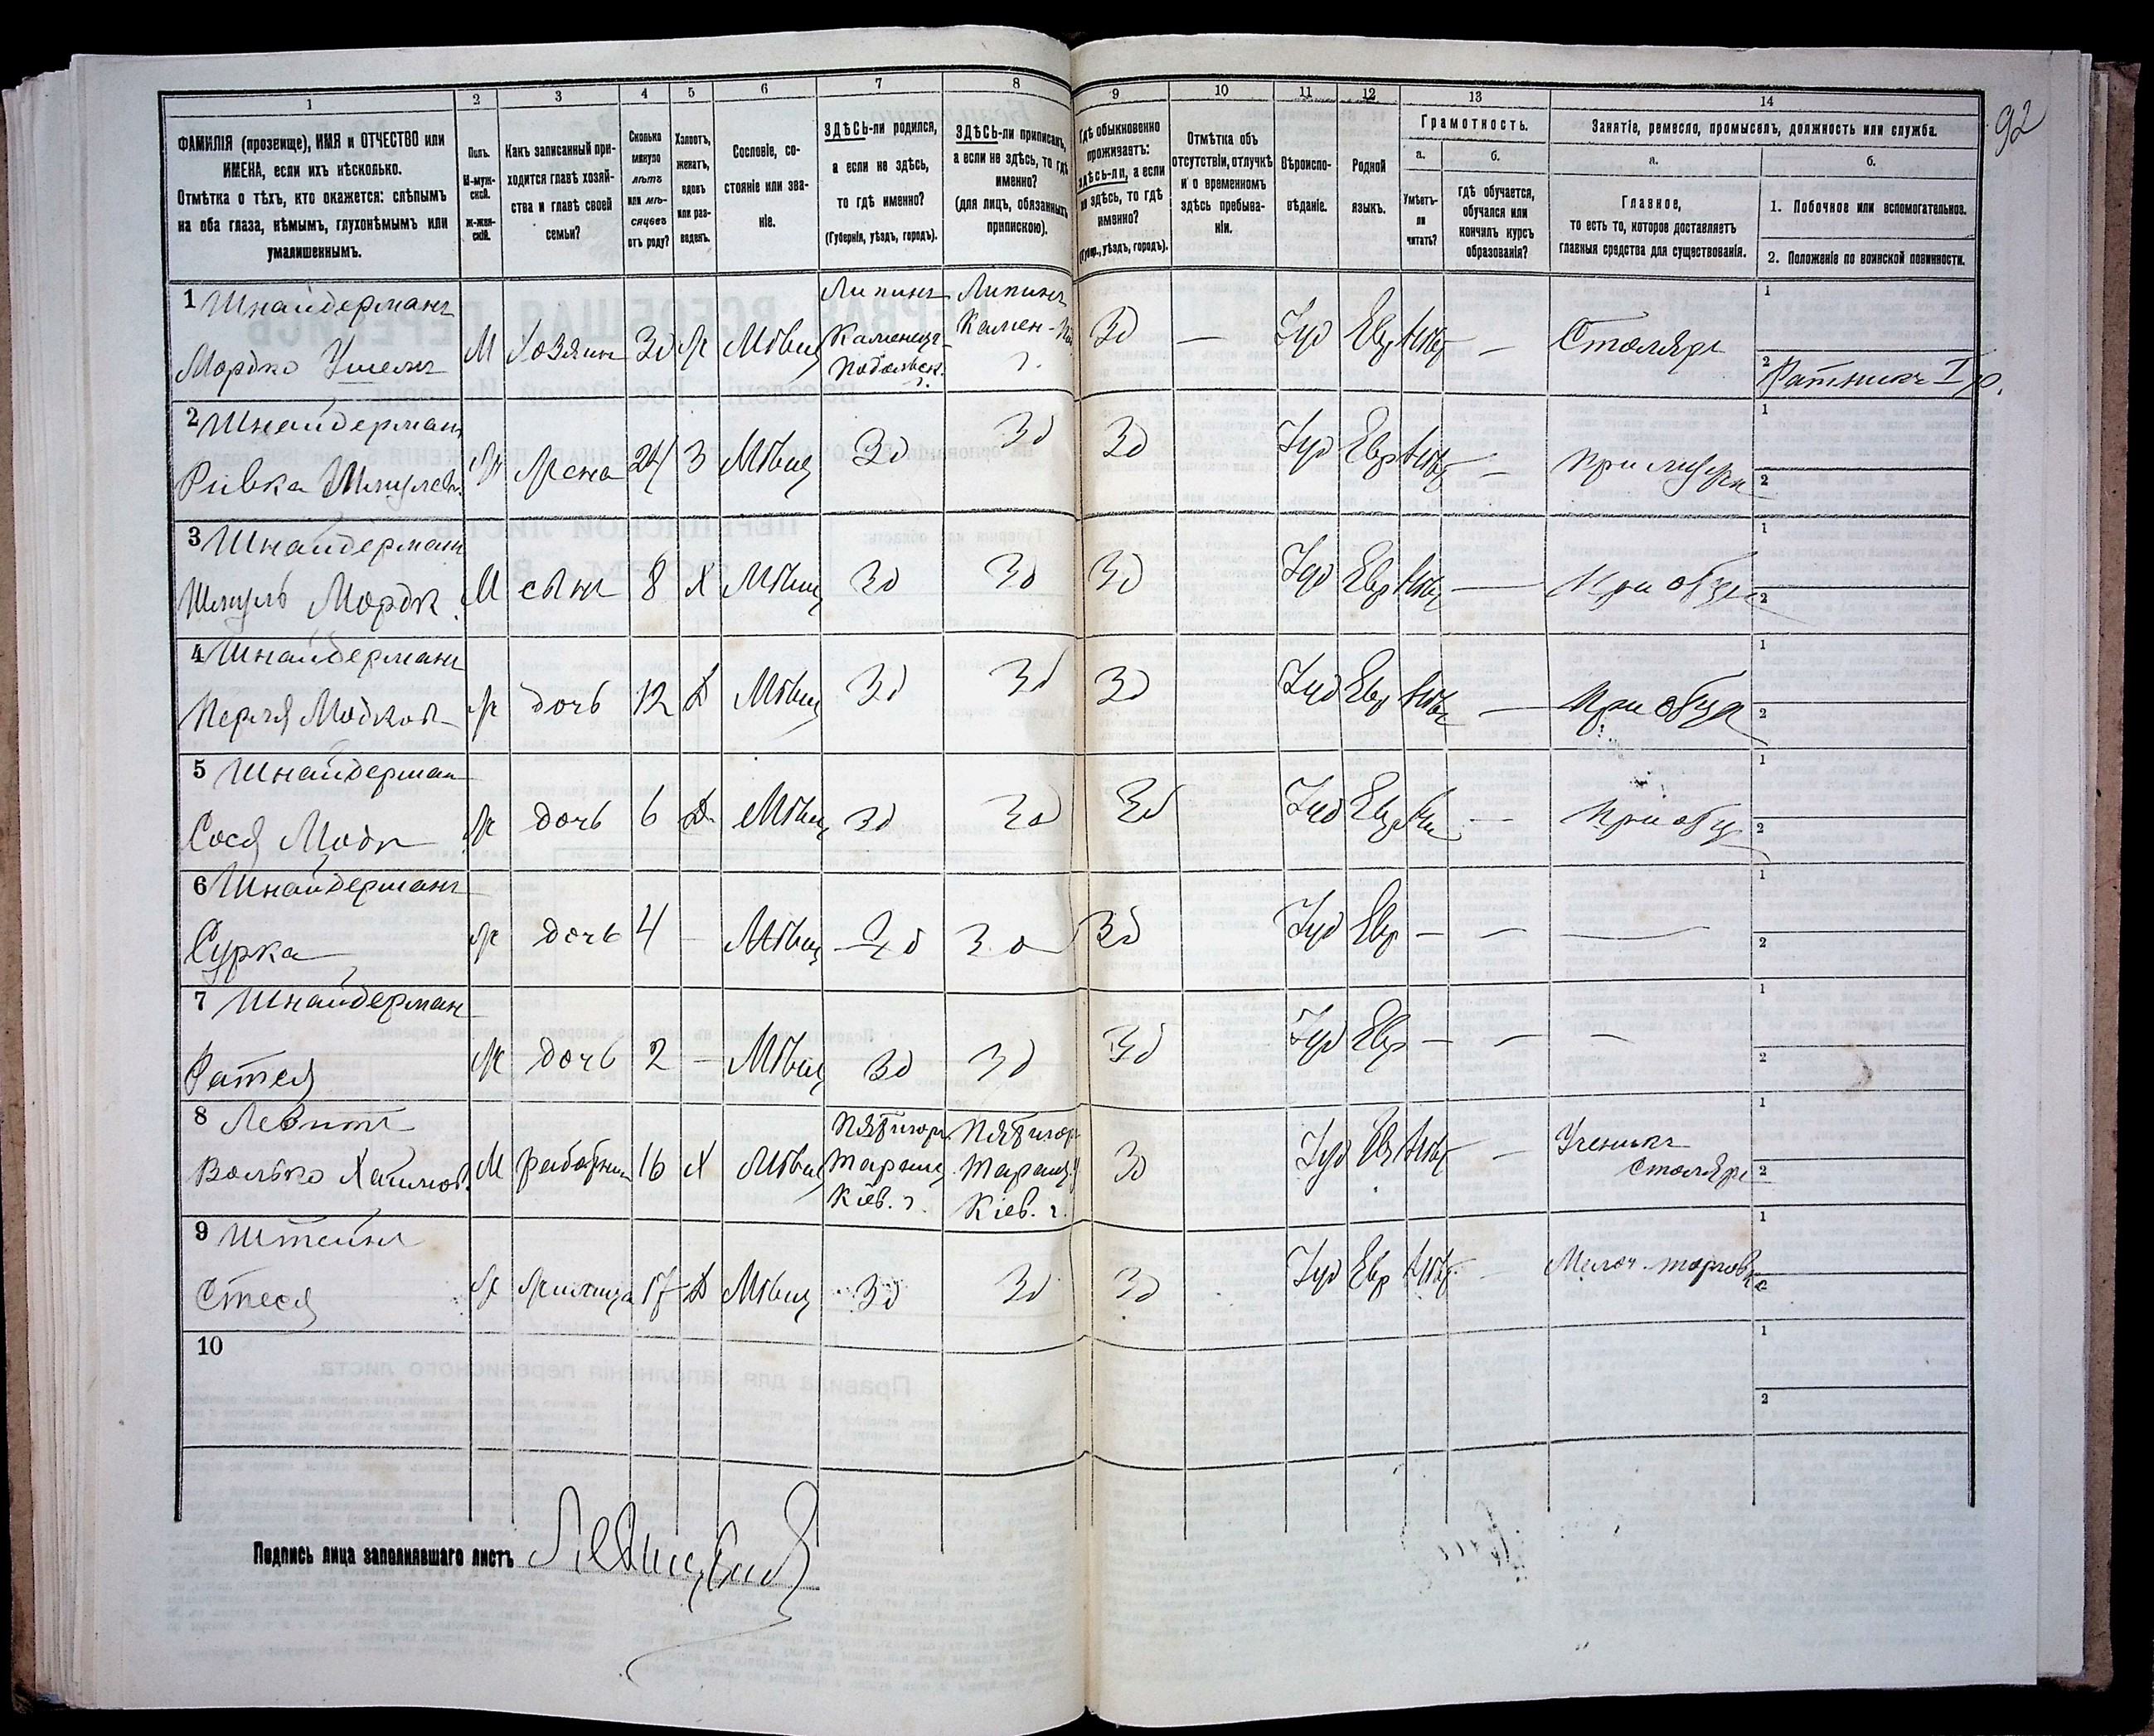 92
1 2 3 4 5 6 7 8 9 10 11 12 13 14
ФАМИЛІЯ (прозвище), ИМЯ и ОТЧЕСТВО или
ИМЕНА, если ихъ нѣсколько.
Отмѣтка о тѣхъ, кто окажется: слѣпымъ
на оба глаза, нѣмымъ, глухонѣмымъ или
умалишеннымъ.
Полъ.
М-муж-
ской.
ж-жен-
скій.
Какъ записанный при-
ходится главѣ хозяй-
ства и главѣ своей
семьи?
Сколько
минуло
лѣтъ
или мѣ-
сяцевъ
отъ роду?
Холостъ,
женатъ,
вдовъ
или раз-
веденъ.
Сословіе, со-
стояніе или зва-
ніе.
ЗДѢСЬ-ли родился,
а если не здѣсь,
то гдѣ именно?
(Губернія, уѣздъ, городъ).
ЗДѢСЬ-ли приписанъ,
а если не здѣсь, то гдѣ
именно?
(для лицъ, обязанныхъ
припискою).
Гдѣ обыкновенно
проживаетъ:
здѣсь-ли, а если
не здѣсь, то гдѣ
именно?
(Губер., уѣздъ, городъ).
Отмѣтка объ
отсутствіи, отлучкѣ
и о временномъ
здѣсь пребыва-
ніи.
Вѣроиспо-
вѣданіе.
Родной
языкъ.
Грамотность.
а.
Умѣетъ-
ли
читать?
б.
гдѣ обучается,
обучался или
кончилъ курсъ
образованія?
Занятіе, ремесло, промыселъ, должность или служба.
а.
Главное,
то есть то, которое доставляетъ
главныя средства для существованія.
б.
1. Побочное или вспомогательное.
2. Положеніе по воинской повинности.
1 Шнайдерманъ
Мордко Ушеръ М Хозяин 30 Ж Мѣщ
Липинъ
Каменецъ-
Подольск.
г.
Липинъ
Камен-
г.
Зд — Іуд Евр — Столяръ
1
2 Ратникъ I р.
2 Шнайдерман
Ривка Шмулев. Ж жена 24 З Мѣщ Зд Зд Зд Іуд Евр — При мужѣ
1
2
3 Шнайдерман
Шмуль Мордк. М сынъ 8 Х Мѣщ Зд Зд Зд Іуд Евр — При отцѣ
1
2
4 Шнайдерманъ
Перля Модков Ж дочь 12 Д Мѣщ Зд Зд Зд Іуд Евр — При отцѣ
1
2
5 Шнайдерман
Сося Модк Ж дочь 6 Д Мѣщ Зд Зд Зд Іуд Евр — При отцѣ
1
2
6 Шнайдерманъ
Сурка Ж дочь 4 — Мѣщ Зд Зд Зд Іуд Евр — — —
1
2
7 Шнайдерман
Ж дочь 2 — Мѣщ Зд Зд Зд Іуд Евр — — —
1
2
8 Левитъ
Волько Хаимов. М работник 16 Х Мѣщ
Пятигор
Таращ
Кіев. г.
Пятигор
Таращ
Кіев. г.
Зд Іуд Ев —
Ученикъ
столяръ
1
2
9 Штейнъ
Стеся Ж Жилица 17 Д Мѣщ Зд Зд Зд Іуд Евр — Мелоч. торговка
1
2
10
1
2
Подпись лица заполнявшаго листъ